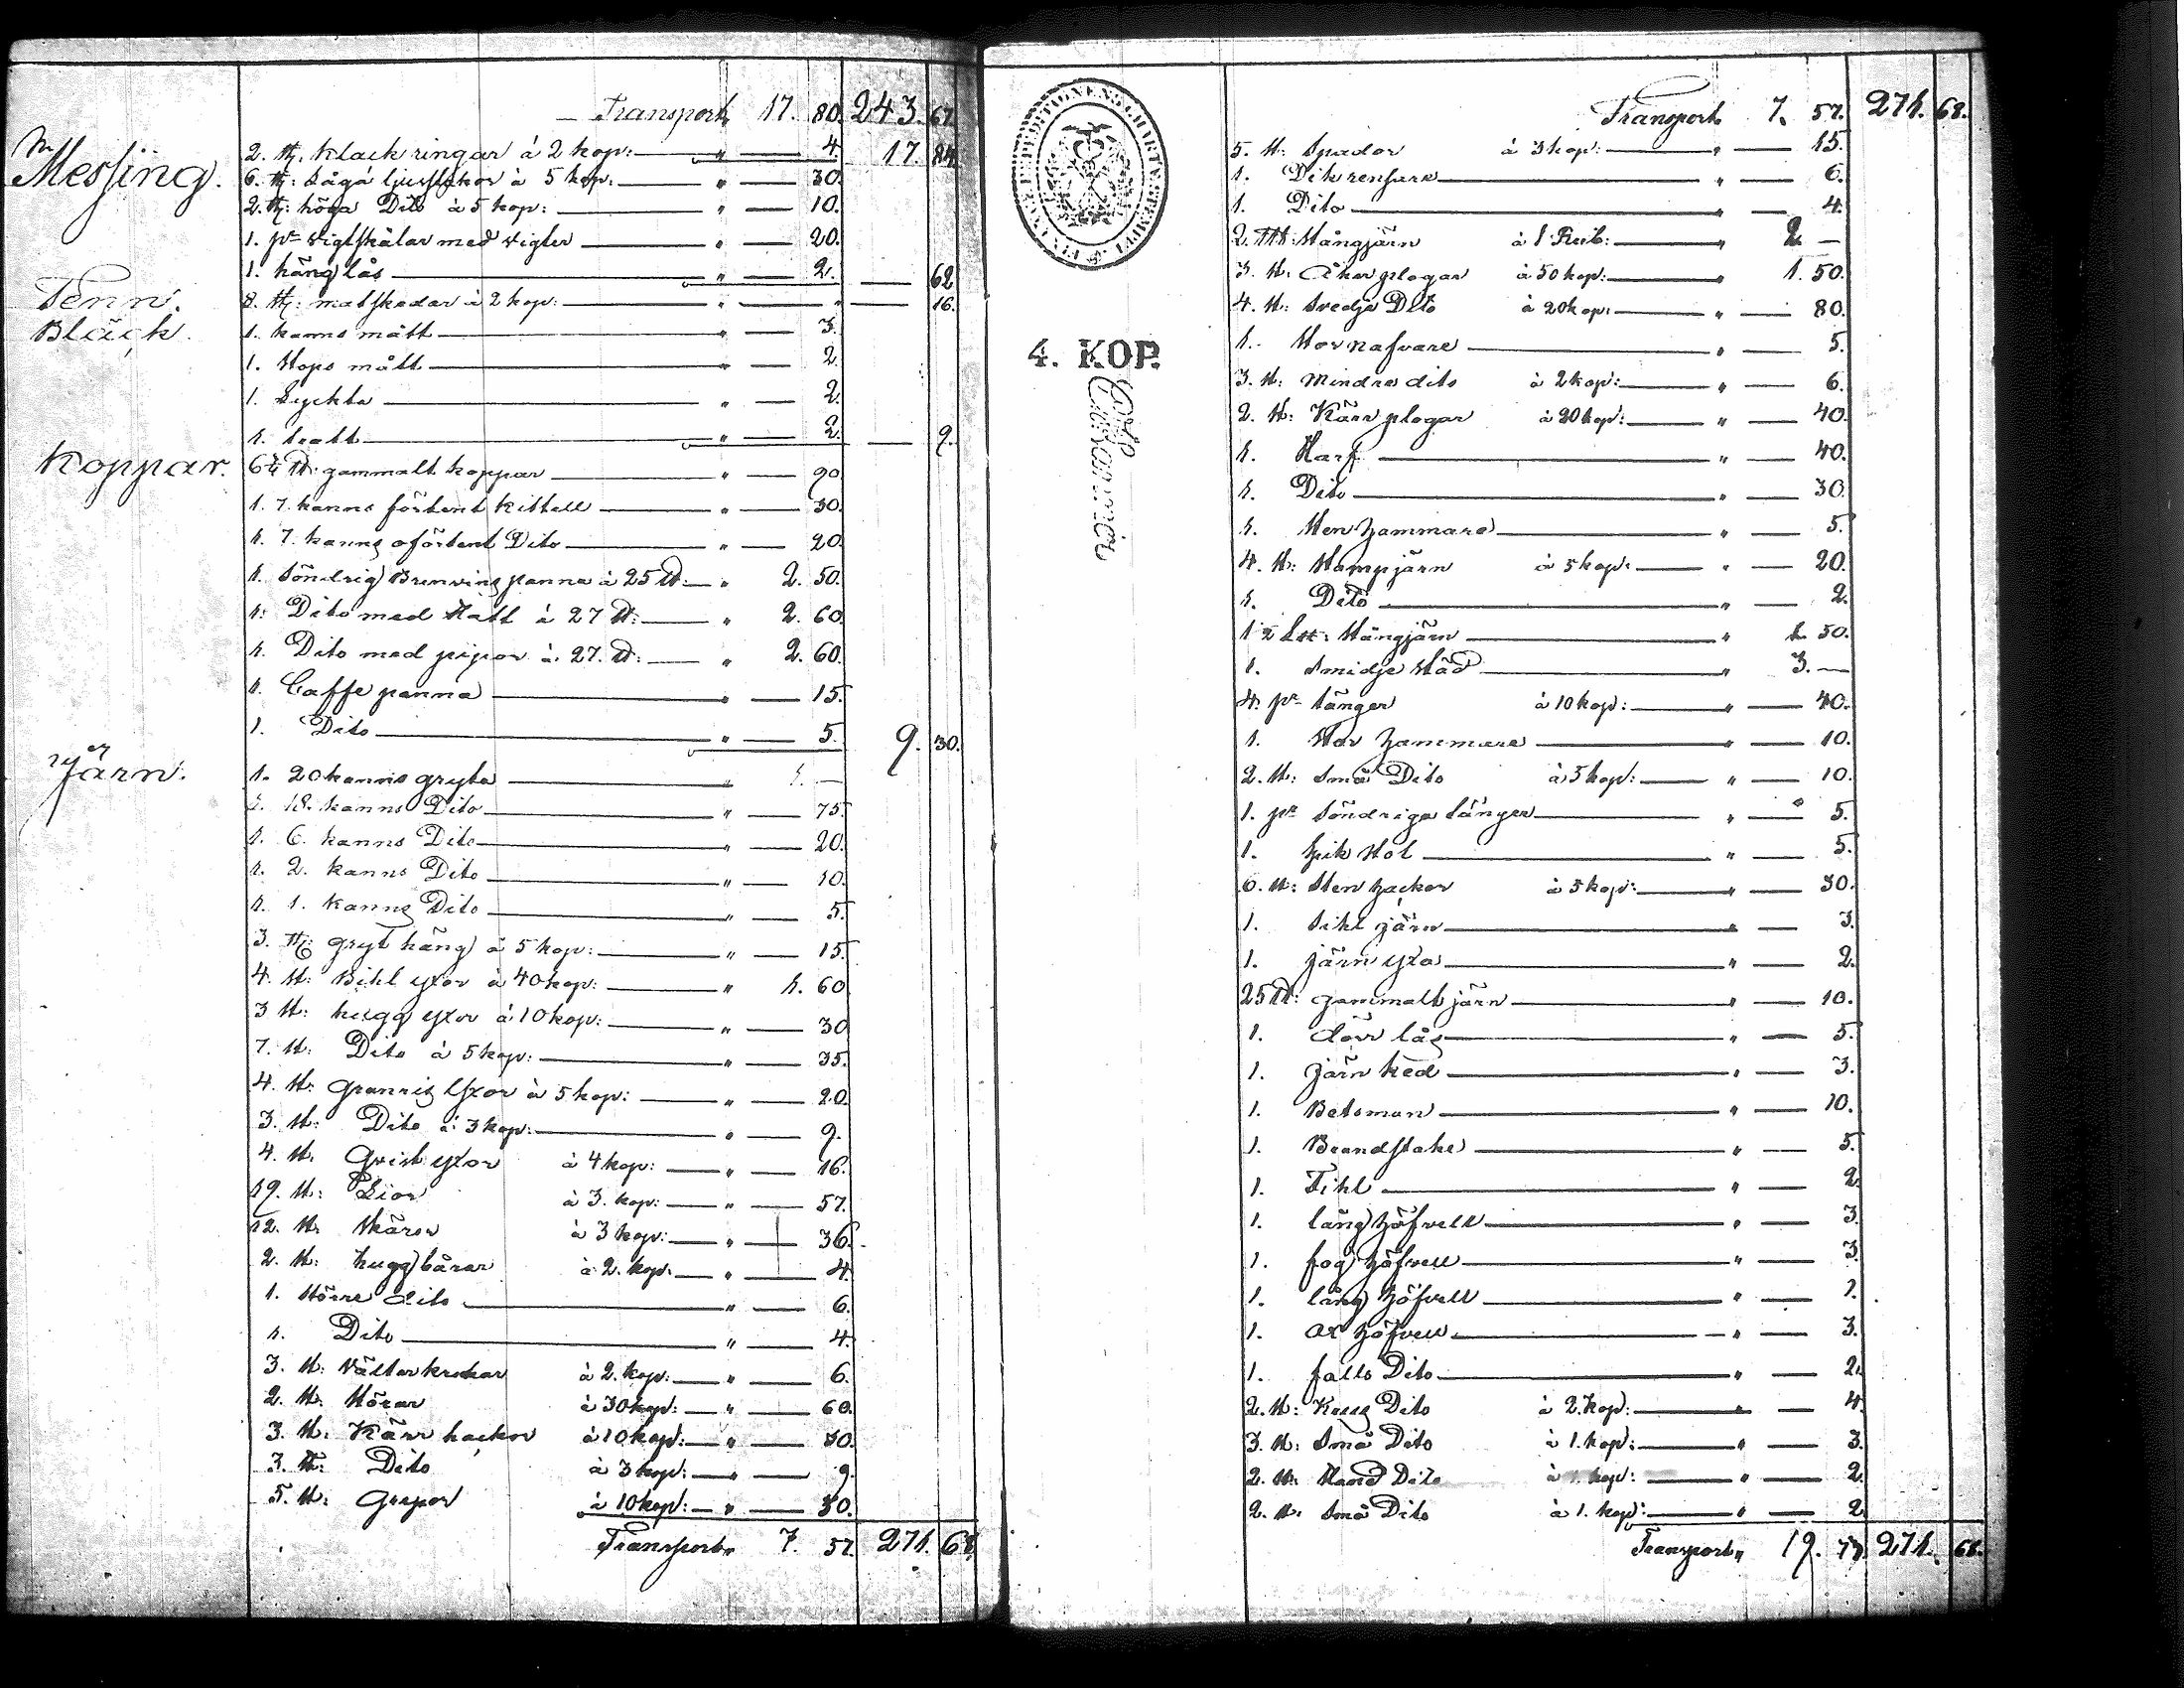 Transport " 17. 80. 243. 67.
2. st: Klackringar á 2 kop: " 4. 17. 84.
Messing.
6. st: Låga ljusstakar á 5 kop: " 30.
2. st: höga Dito á 5 kop: " 10.
1. pr vigtskålar med vigter " 20.
1. hänglås " 2. 62
Tenn. 8. st: matskedar á 2 kop: " " 16.
Bläck. 1. kanns mått " 3.
1. stops mått " 2.
1. Lyckta " 2.
1. tratt " 2. 9.
Koppar. 6½ ℔: gammalt koppar " 90
1. 7. kanns förtent kittell " 30.
1. 7. kanns oförtent Dito " 20.
1. söndrig Brenvins panna á 25 ℔: " 2. 50.
1. Dito med Hatt á 27 ℔: " 2. 60.
1. Dito med pipor á 27. ℔: " 2. 60.
1. Caffe panna " 15.
1. Dito " 5. 9. 30.
Järn. 1. 20 kanns gryta " 1. —
1. 18. kanns Dito " 75.
1. 6. kanns Dito " 20.
1. 2. kanns Dito " 10.
1. 1. kanns Dito " 5.
3. st: gryt häng á 5 kop: " 15.
4. st: Bihl yxor á 40 kop: " 1. 60
3 st: hugg yxor á 10 kop: " 30
7. st: Dito á 5 kop: " 35.
4. st: Granris Yxor á 5 kop: " 20.
3. st: Dito á 3 kop: " 9.
4. st: Qvist yxor á 4 kop: " 16.
19. st: Lior á 3. kop: " 57.
12. st: skäror á 3 kop: " 36.
2. st: hugg bårar á 2. kop: " 4.
1. större dito " 6.
1. Dito " 4.
3. st: Vältorkrokar á 2. kop: " 6.
2. st: störar á 30 kop: " 60.
3. st: Kärr hackor á 10 kop: " 30.
3. st: Dito á 3 kop: " 9.
5. st: Grepor á 10 kop: " 50.
Transport " 7. 57. 271. 68.
CHARTÆ EXPEDITIONENS CHARTÆ STEMPEL
4. KOP.
Transport " 7. 57. 271. 68.
5. st: Spador á 3 kop: " 15.
1. Dikrensare " 6.
1. Dito " 4.
2. st: Stångjärn á 1 Rub: " 2 —
3. st: Åker plogar á 50 kop: " 1. 50.
4. st: Svedje Dito á 20 kop: " 80.
1. Stor nafvare " 5.
3. st: Mindre dito á 2 kop: " 6.
2. st: Kärr plogar á 20 kop: " 40.
1. Harf " 40.
1. Dito " 30.
1. Sten hammare " 5.
4. st: Stampjärn á 5 kop: " 20.
1. Dito " 2.
1½ L℔: Stångjärn " 1. 50.
1. Smidje städ " 3. —
4. pr tänger á 10 kop: " 40.
1. Stor hammare " 10.
2. st: små Dito á 5 kop: " 10.
1. pr söndriga tänger " 5.
1. Spik stol " 5.
6. st: Sten hackor á 5 kop: " 30.
1. Sihl järn " 3.
1. järn yxa " 2.
25 ℔: gammalt järn " 10.
1. dörr lås " 5.
1. järn ked " 3.
1. Betsman " 10.
1. Brandstake " 5.
1. Fihl " 2
1. lång höfvell " 3.
1. fog höfvell " 3.
1. lång höfvell " 2.
1. ox höfvell " 3.
1. falls Dito " 2.
2. st: Kruss Dito á 2. kop: " 4.
3. st: Små Dito á 1. kop: " 3.
2. st: Hand Dito á 1. kop: " 2
2. st: små Dito á 1. kop: " 2
Transport " 19. 271. 68.